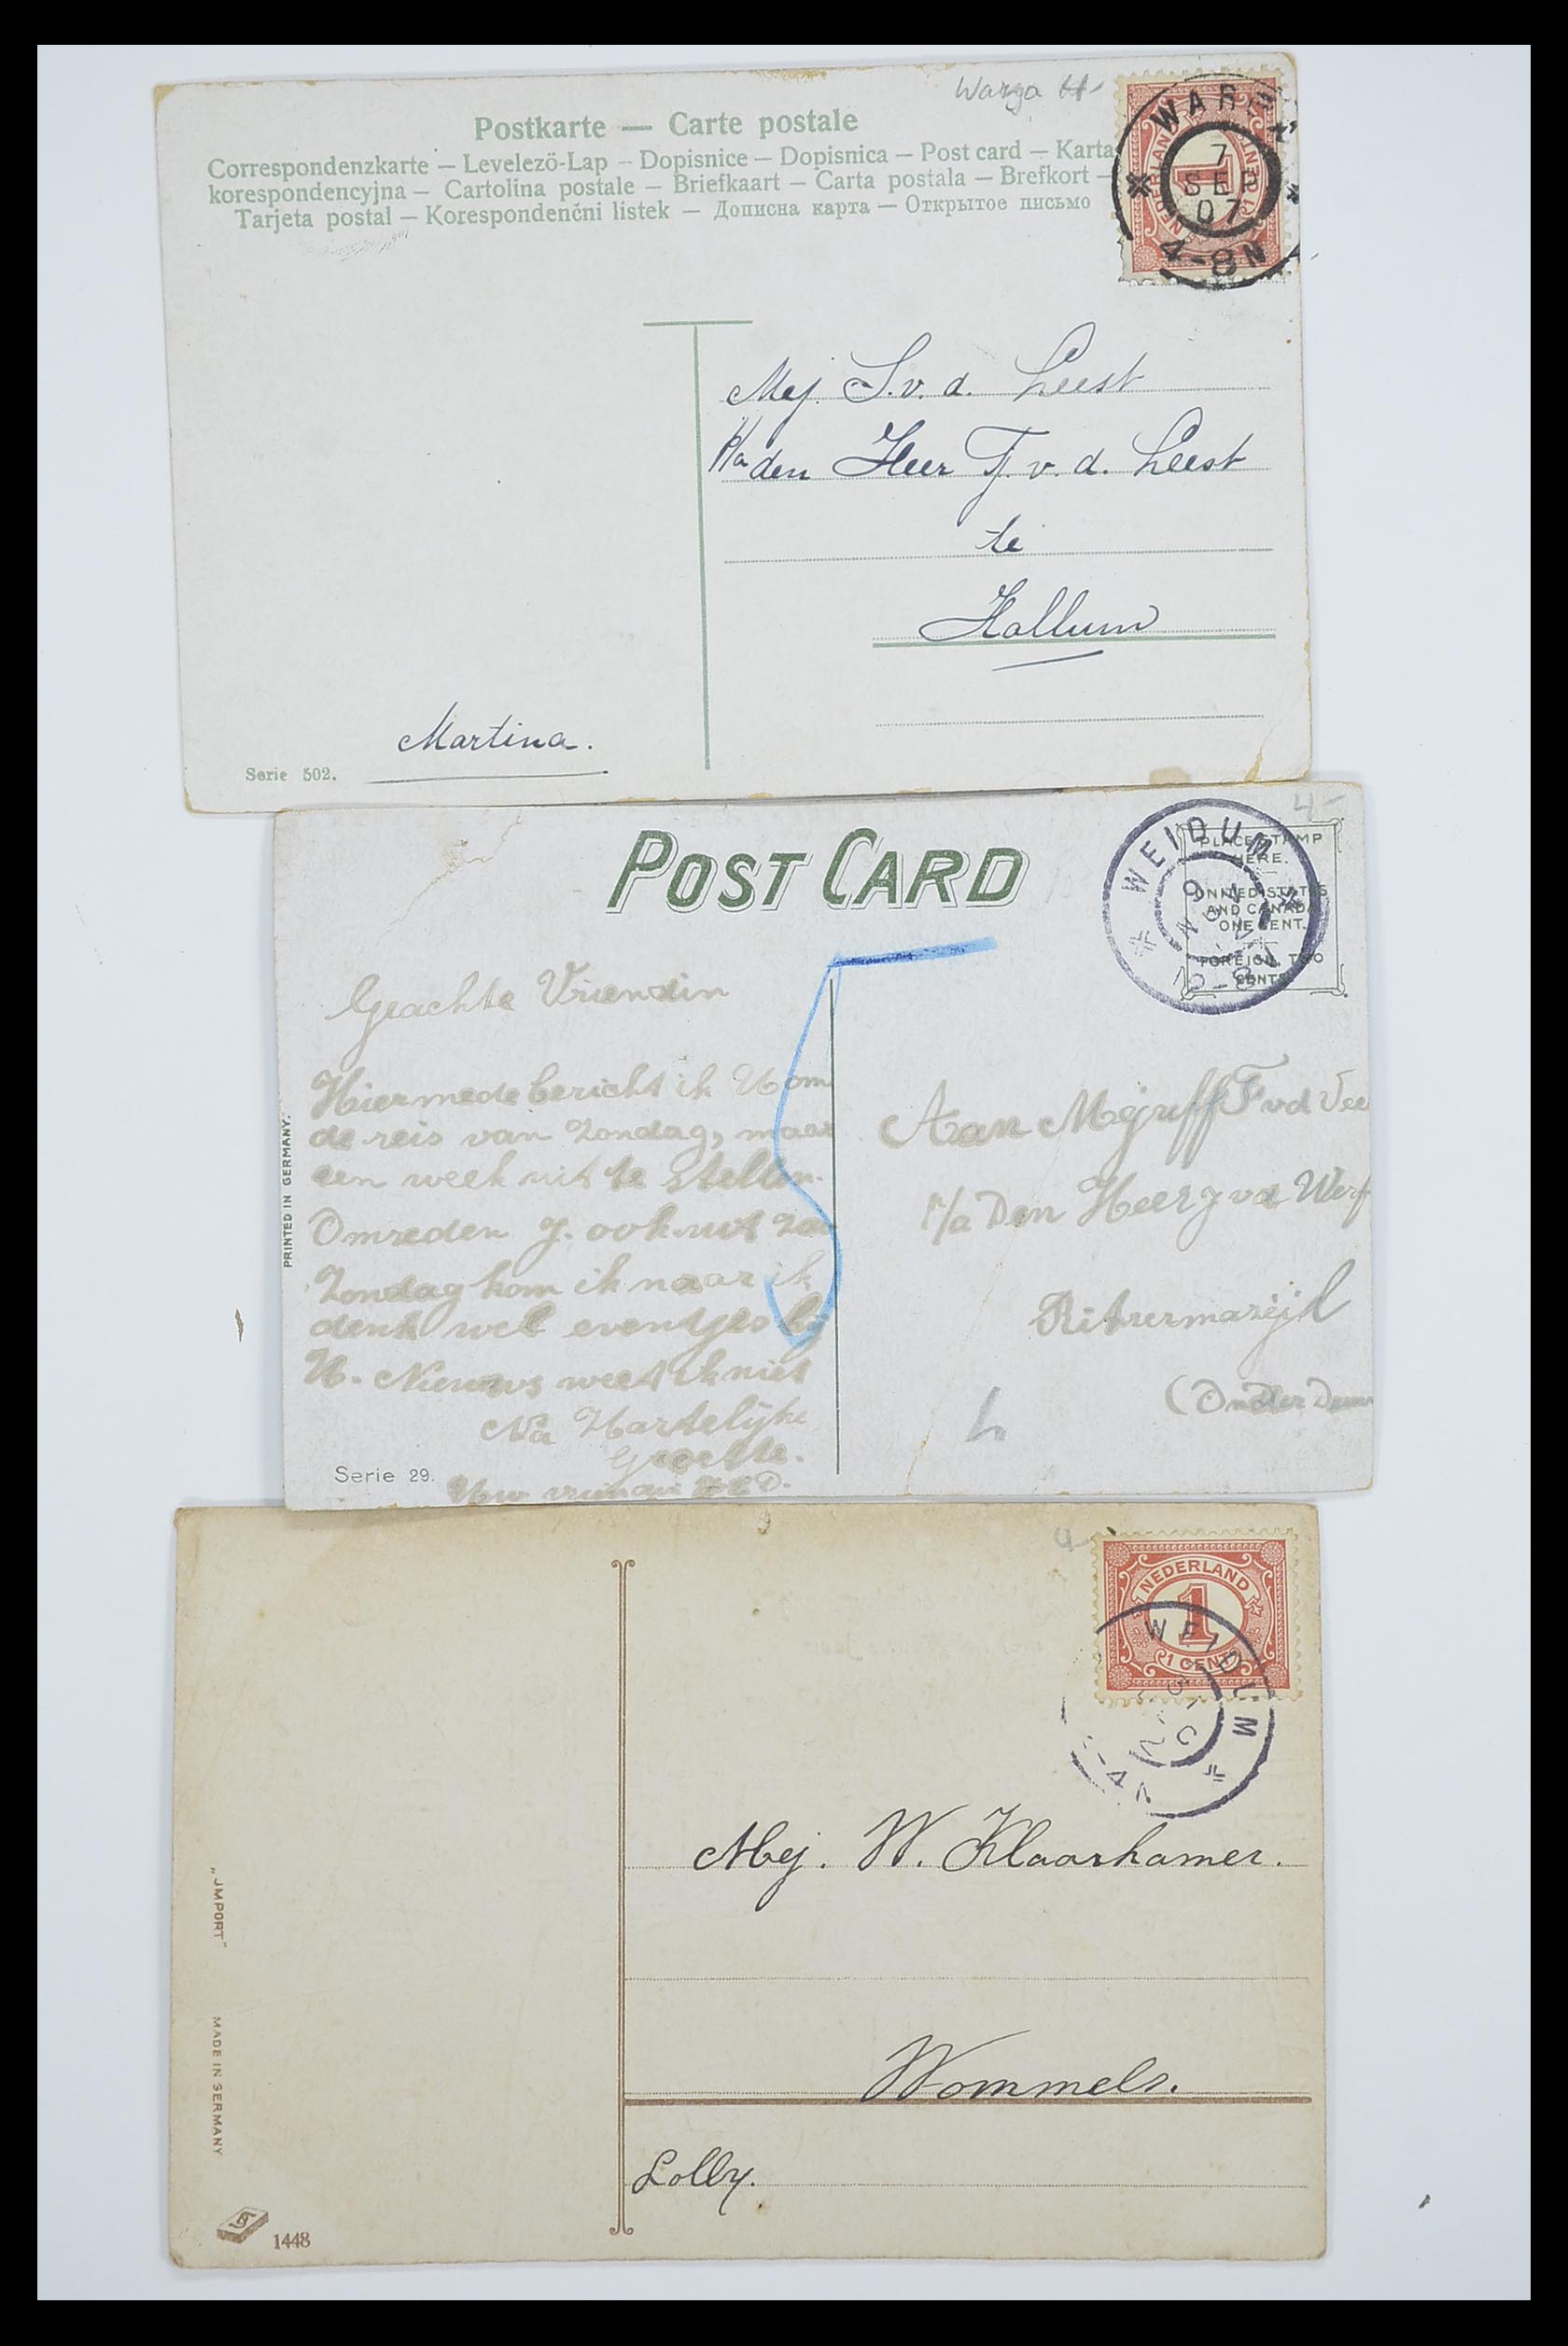 Warga
Postkarte — Carte postale
Correspondenzkarte – Levelezö-Lap – Dopisnice – Dopisnica – Post card – Karta
korespondencyjna – Cartolina postale – Briefkaart – Carta postala – Brefkort –
Tarjeta postal – Korespondenční listek – Дописна карта – Открытое письмо
7
SEP
07
4-8N
Mej. S. v. d. Leest
p/a den Heer T. v. d. Leest
te
Hallum
Martina.
Serie 502.
POST CARD
4-
WEIDUM
PLACE STAMP
HERE.
UNITED STATES
AND CANADA
ONE CENT.
FOREIGN, TWO
CENTS
Geachte Vriendin
Hiermede bericht ik U om
de reis van Zondag, maar
een week uit te stellen.
Omreden J. ook uit
Zondag kom ik naar ik
denk wel eventjes bij
U. Nieuws weet ik niet
Na Hartelijke
Groette.
Uw
PRINTED IN GERMANY.
Serie 29.
Aan Mejuff F vd
p/a Den Heer J vd Werf
(Onder
4-
NEDERLAND
1
1 CENT
WEIDUM
Mej. W. Klaarhamer.
Wommels.
Lolly.
„JMPORT"
MADE IN GERMANY
1448